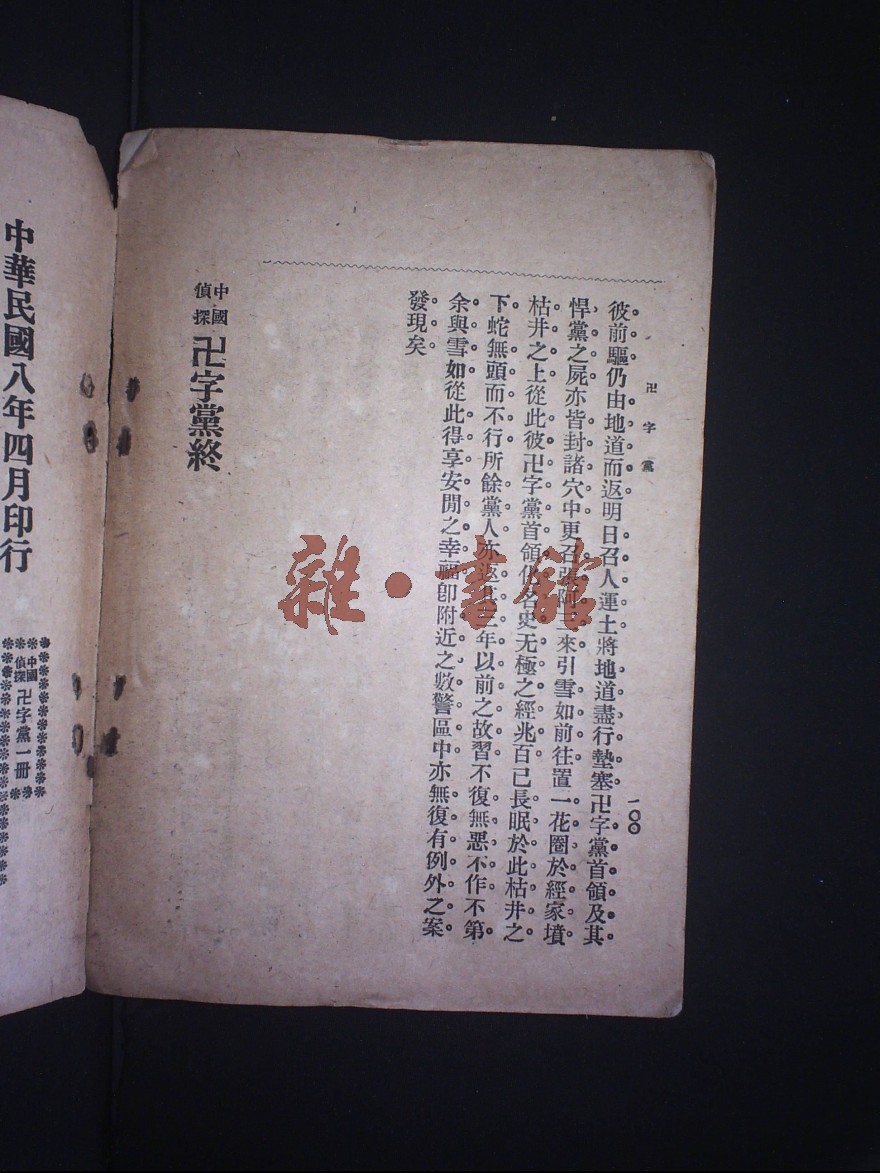 卍字黨
一〇〇
彼前驅仍由地道而返明日召人運土將地道盡行墊塞卍字黨首領及其
悍黨之屍亦皆封諸穴中更召張阿三來引雪如前往置一花圈於經家墳
枯井之上從此彼卍字黨首領化名史无極之經兆百已長眠於此枯井之
下蛇無頭而不行所餘黨人亦返其三年以前之故習不復無惡不作不第
余與雪如從此得享安閒之幸福卽附近之數警區中亦無復有例外之案
發現矣
中國偵探 卍字黨終
中華民國八年四月印行
中國偵探 卍字黨一冊
雜·書館